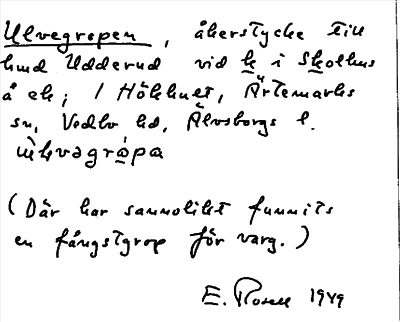 Ulvegropen, åkerstycke till
hmd Udderud vid k i Skolhus
å ek; 1 Hökhult, Ärtemarks
sn, Vedbo hd, Älvsborgs l.
ùlvəgrápa
(Där har sannolikt funnits
en fångstgrop för varg.)
E. Rosell 1949